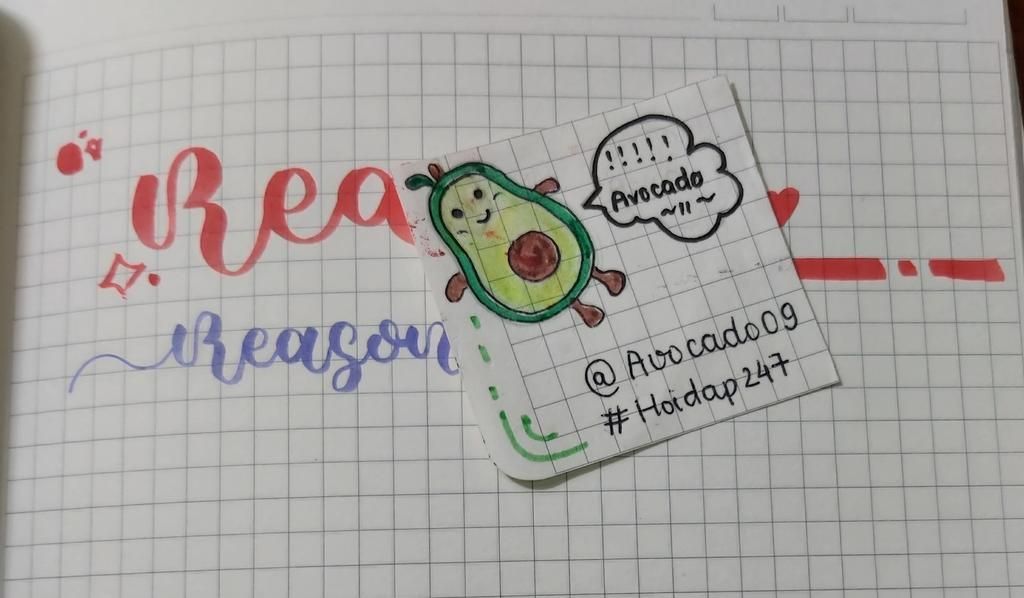 Rea
Reason
!!!!!
Avocado
~"~
@Avocado09
#Hoidap247